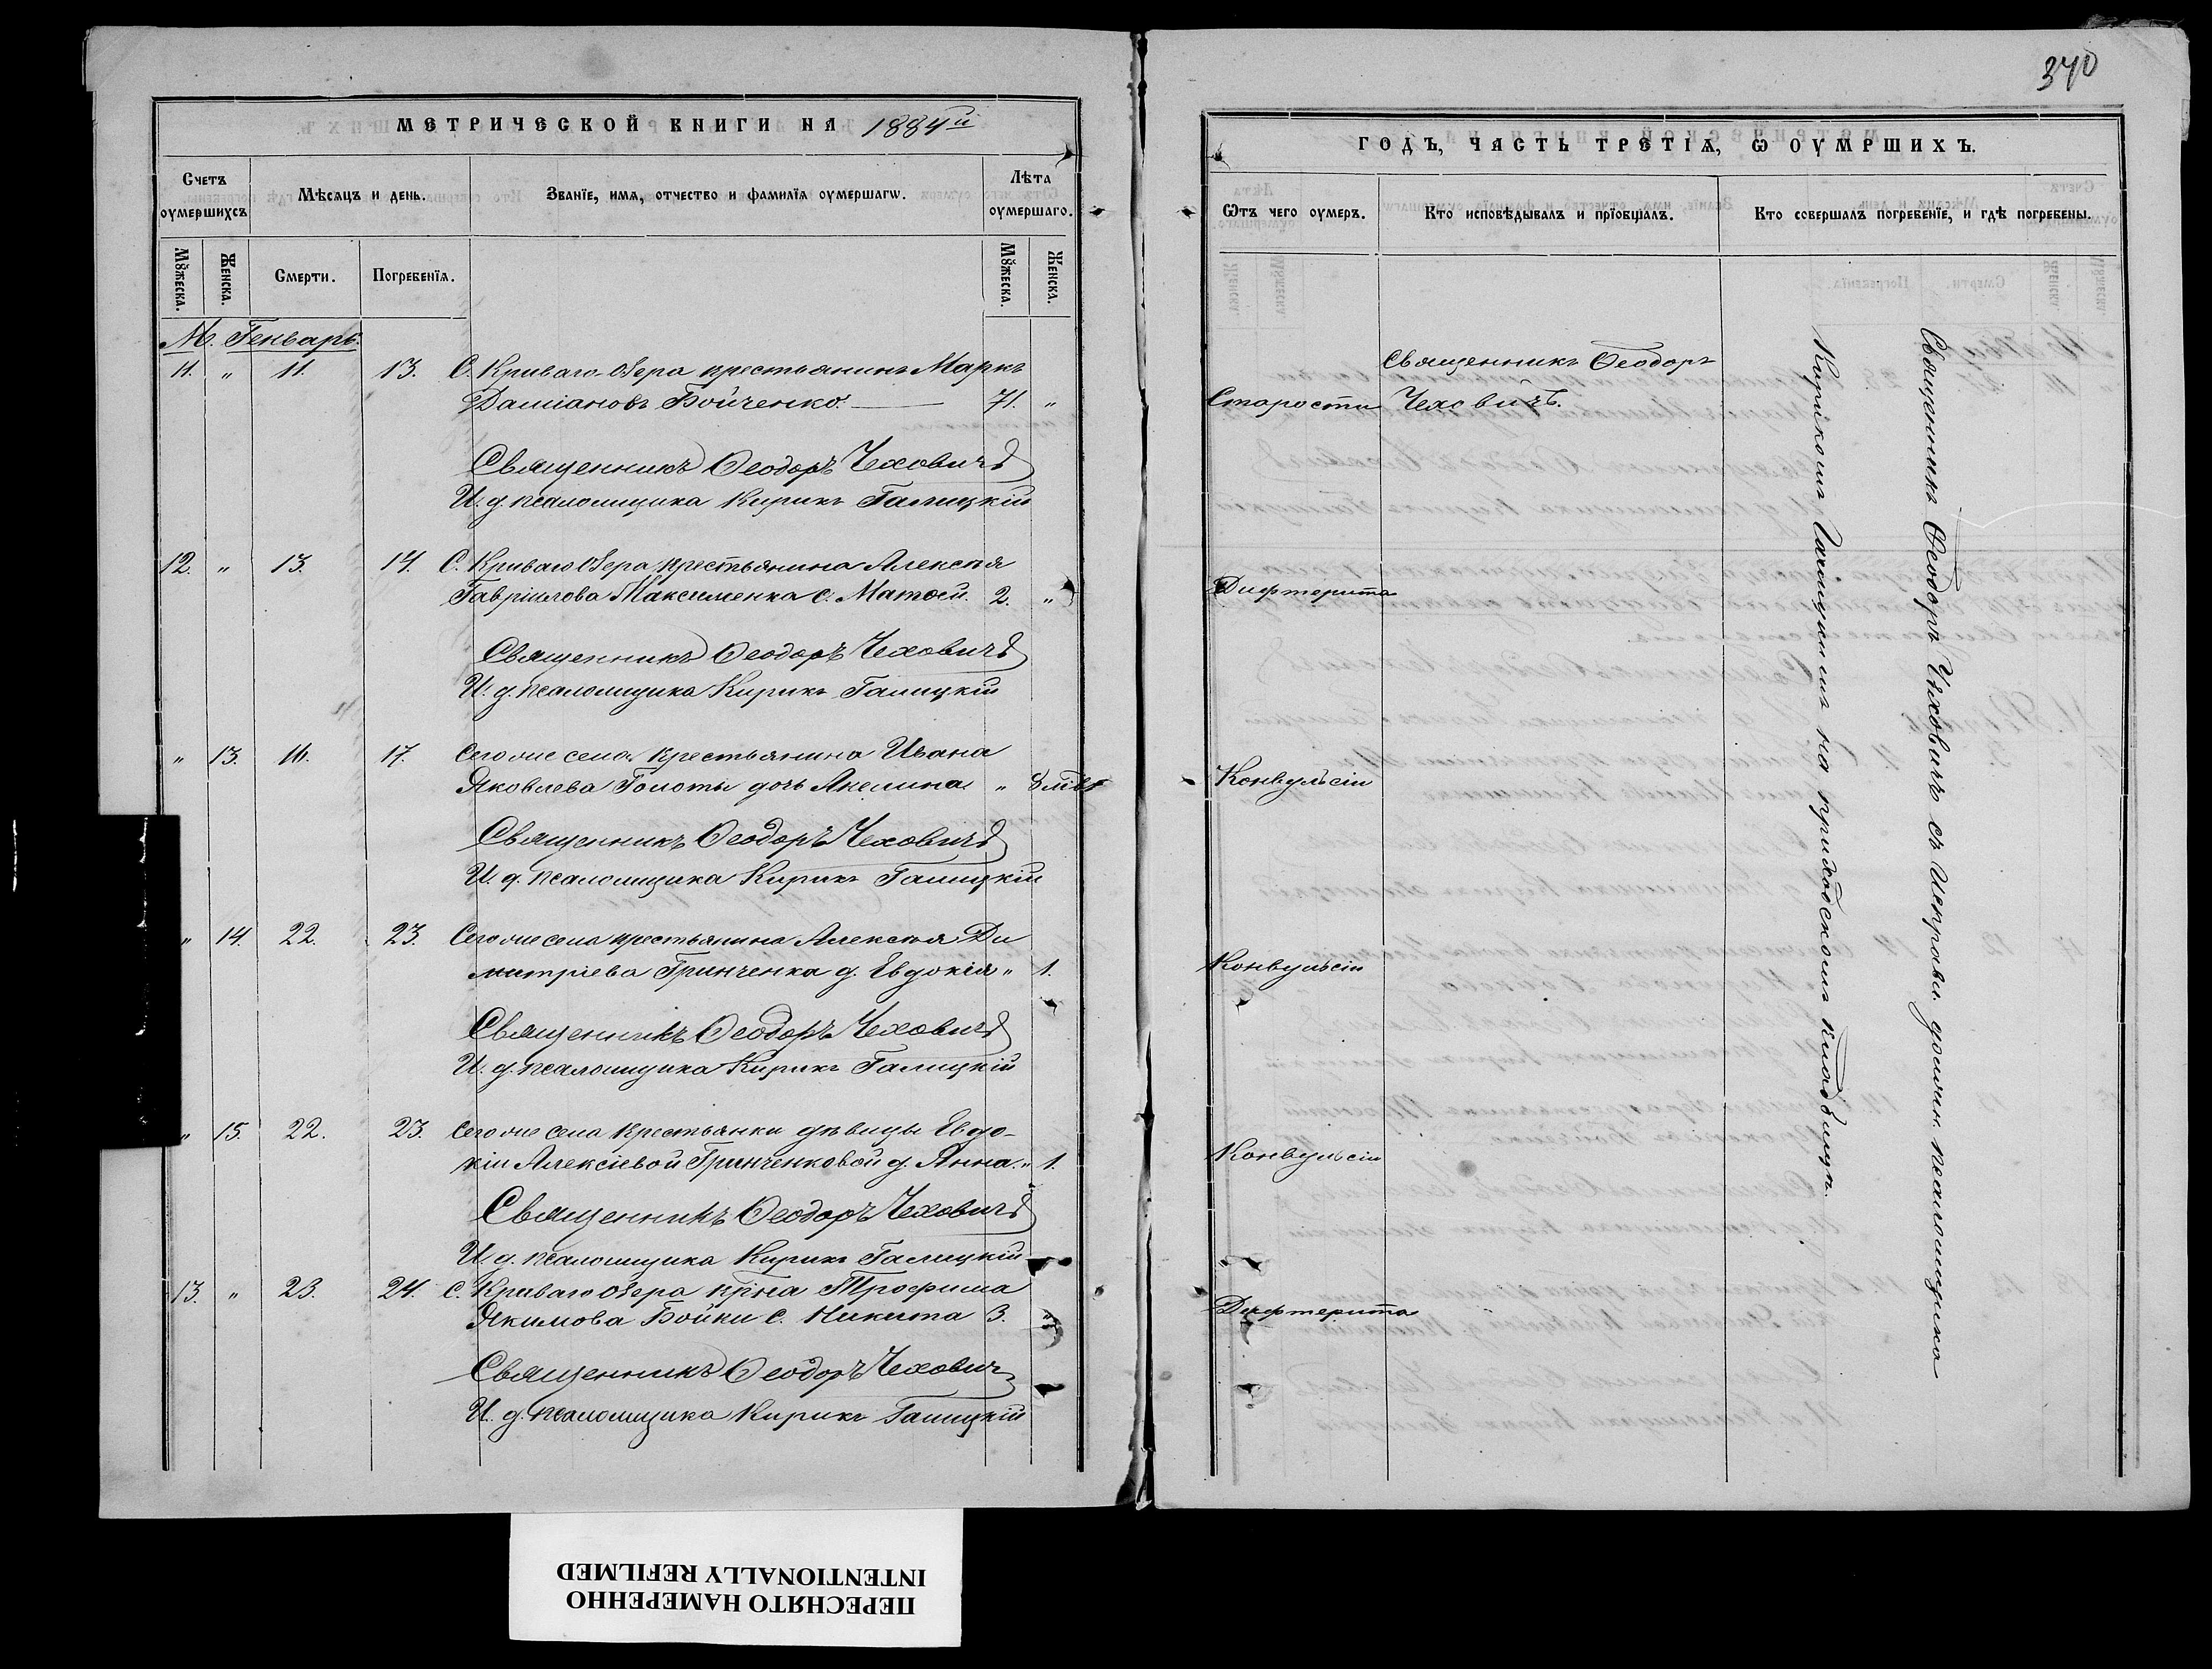 370
МЕТРИЧЕСКОЙ КНИГИ НА 1884й
Счетъ оумершихъ
Мѣсяцъ и день.
Званїе, имя, отчество и фамилїя оумершагѡ.
Лѣта оумершаго.
Мꙋжеска.
Женска.
Смерти.
Погребенїя.
Мꙋжеска.
Женска.
М. Генварь.
11. " 11. 13. С. Криваго-Озера крестьянинъ Маркъ
Даміановъ Бойченко. 71. "
Священникъ Ѳеодоръ Чеховичъ
И. д. псаломщика Кирикъ Галицкій
12. " 13. 14. С. Криваго Озера крестьянина Алексѣя
Гавріилова Максименка с. Матѳей. 2. "
Священникъ Ѳеодоръ Чеховичъ
И. д. псаломщика Кирикъ Галицкій
" 13. 16. 17. Сегоже села крестьянина Ивана
Яковлева Голоты дочь Акелина " 8 мѣс
Священникъ Ѳеодоръ Чеховичъ
И. д. псаломщика Кирикъ Галицкій
" 14. 22. 23. Сегоже села крестьянина Алексѣя Ди
митріева Гринченка д. Евдокія " 1.
Священникъ Ѳеодоръ Чеховичъ
И. д. псаломщика Кирикъ Галицкій
" 15. 22. 23. Сегоже села крестьянки дѣвицы Евдо-
кіи Алексіевой Гринченковой д. Анна. " 1.
Священникъ Ѳеодоръ Чеховичъ
И. д. псаломщика Кирикъ Галицкій
13. " 23. 24. С. Криваго Озера кр͠на Трофима
Якимова Бойки с. Никита 3. "
Священникъ Ѳеодоръ Чеховичъ
И. д. псаломщика Кирикъ Галицкій
ГОДЪ, ЧАСТЬ ТРЕТІЯ, Ѡ ОУМРШИХЪ.
Ѿтъ чего оумеръ.
Кто исповѣдывалъ и прїобщалъ.
Кто совершалъ погребенїе, и гдѣ погребены.
Старости
Священникъ Ѳеодоръ
Чеховичъ.
Дифтерита
Конвульсіи
Конвульсіи
Конвульсіи
Дифтерита
Священникъ Ѳеодоръ Чеховичъ съ исправл. должн. псаломщика
Кирикомъ Галицкимъ на приходскомъ кладбищѣ.
ПЕРЕСНЯТО НАМЕРЕННО
INTENTIONALLY REFILMED